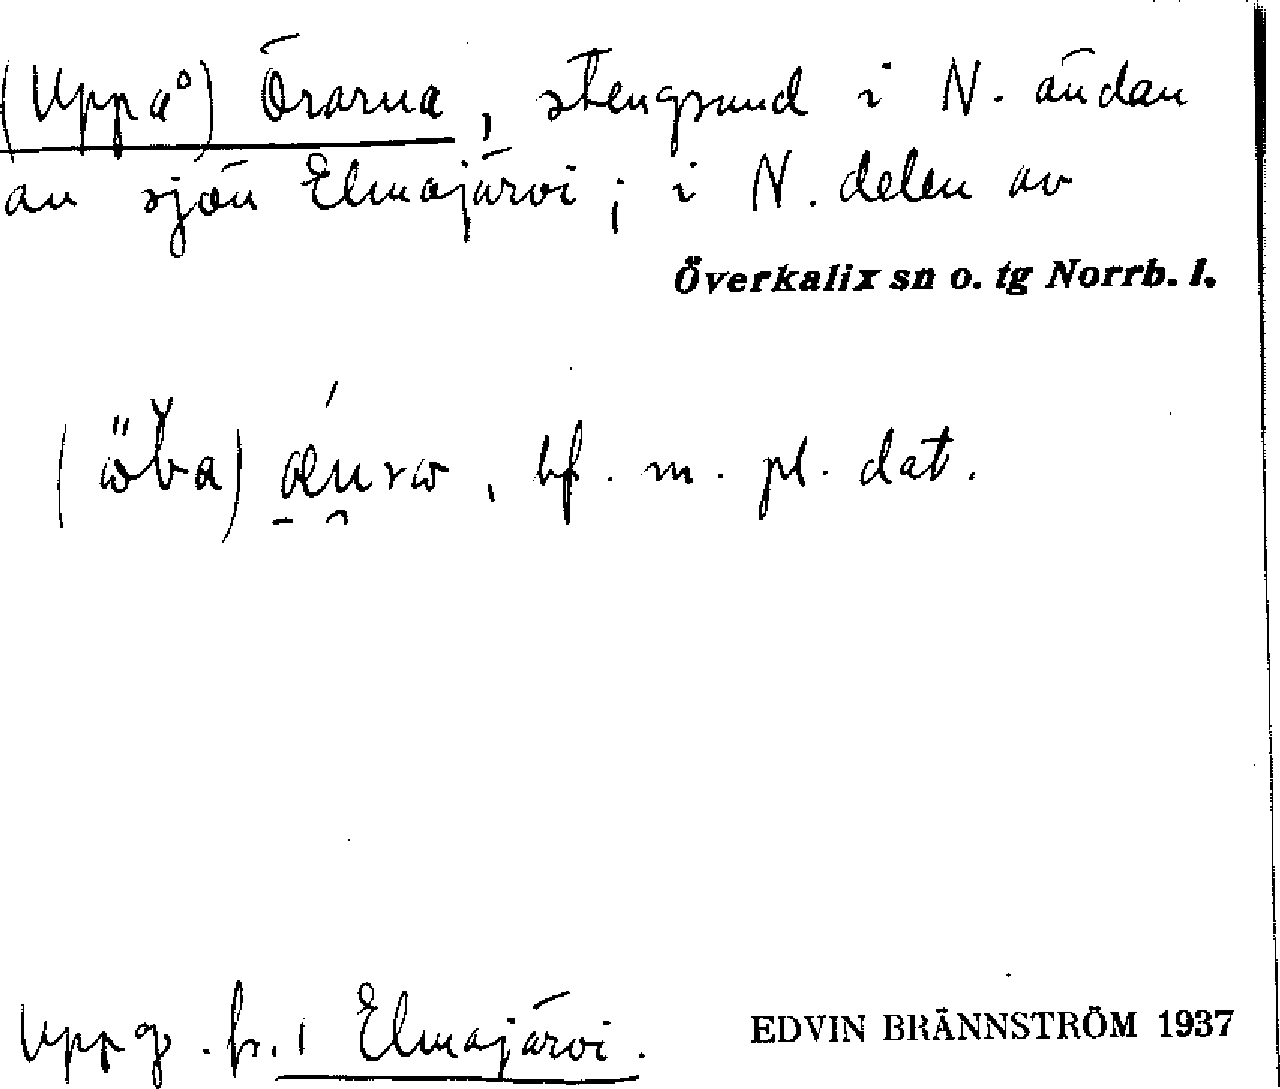 (Uppå) Örarna, stengrund i N. ändan
av sjön Elmajärvi; i N. delen av
Överkalix sn o. tg Norrb. l.
bf. m. pl. dat.
Uppg. fr. i Elmajärvi.
EDVIN BRÄNNSTRÖM 1937